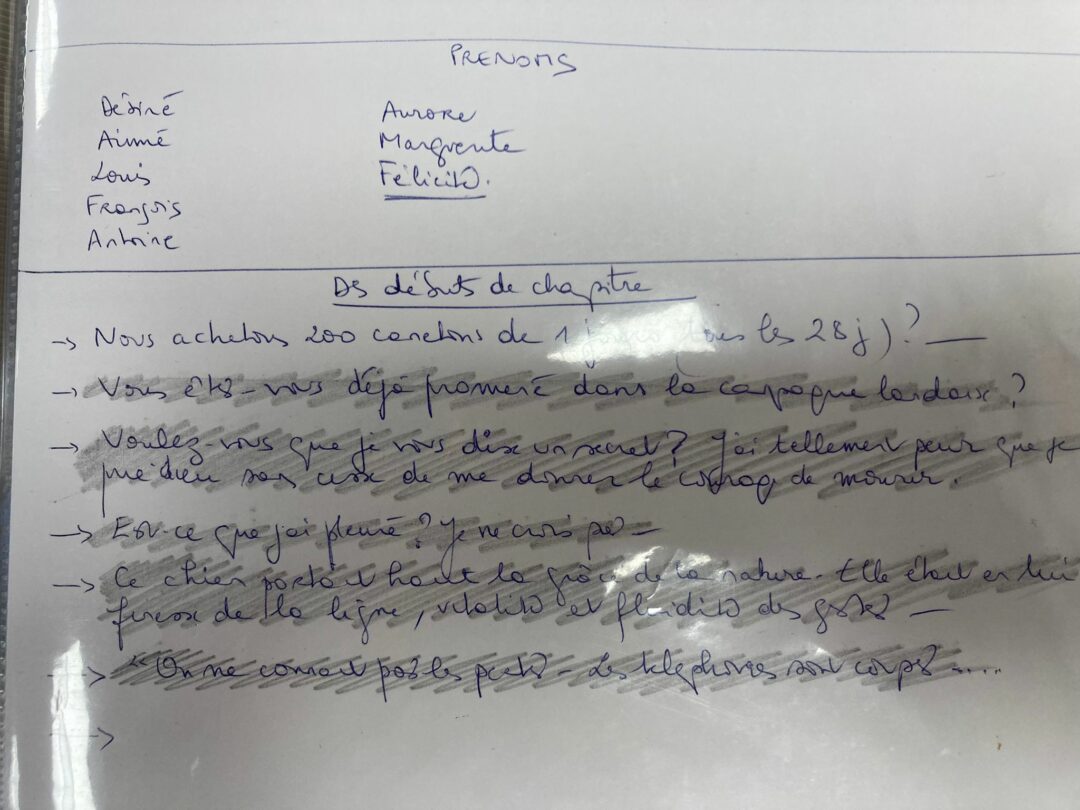 PRENOMS
Désiré Aurore
Aimé Marguerite
Louis Félicité.
François
Antoine
Des débuts de chapitre
→ Nous achetons 200 canetons de 1 (tous les 28 j) ? —
→ Vous êtes-vous déjà promené dans la campagne landaise ?
→ Voulez-vous que je vous dise un secret ? J'ai tellement peur que je
prie dieu sans cesse de me donner le courage de mourir.
→ Est-ce que j'ai pleuré ? Je ne crois pas —
→ Ce chien portait haut la grâce de la nature. Elle était en lui
finesse de la ligne, vitalité et fluidité des gestes —
→ "On ne connait pas les pertes - Les téléphones sont coupés .....
→